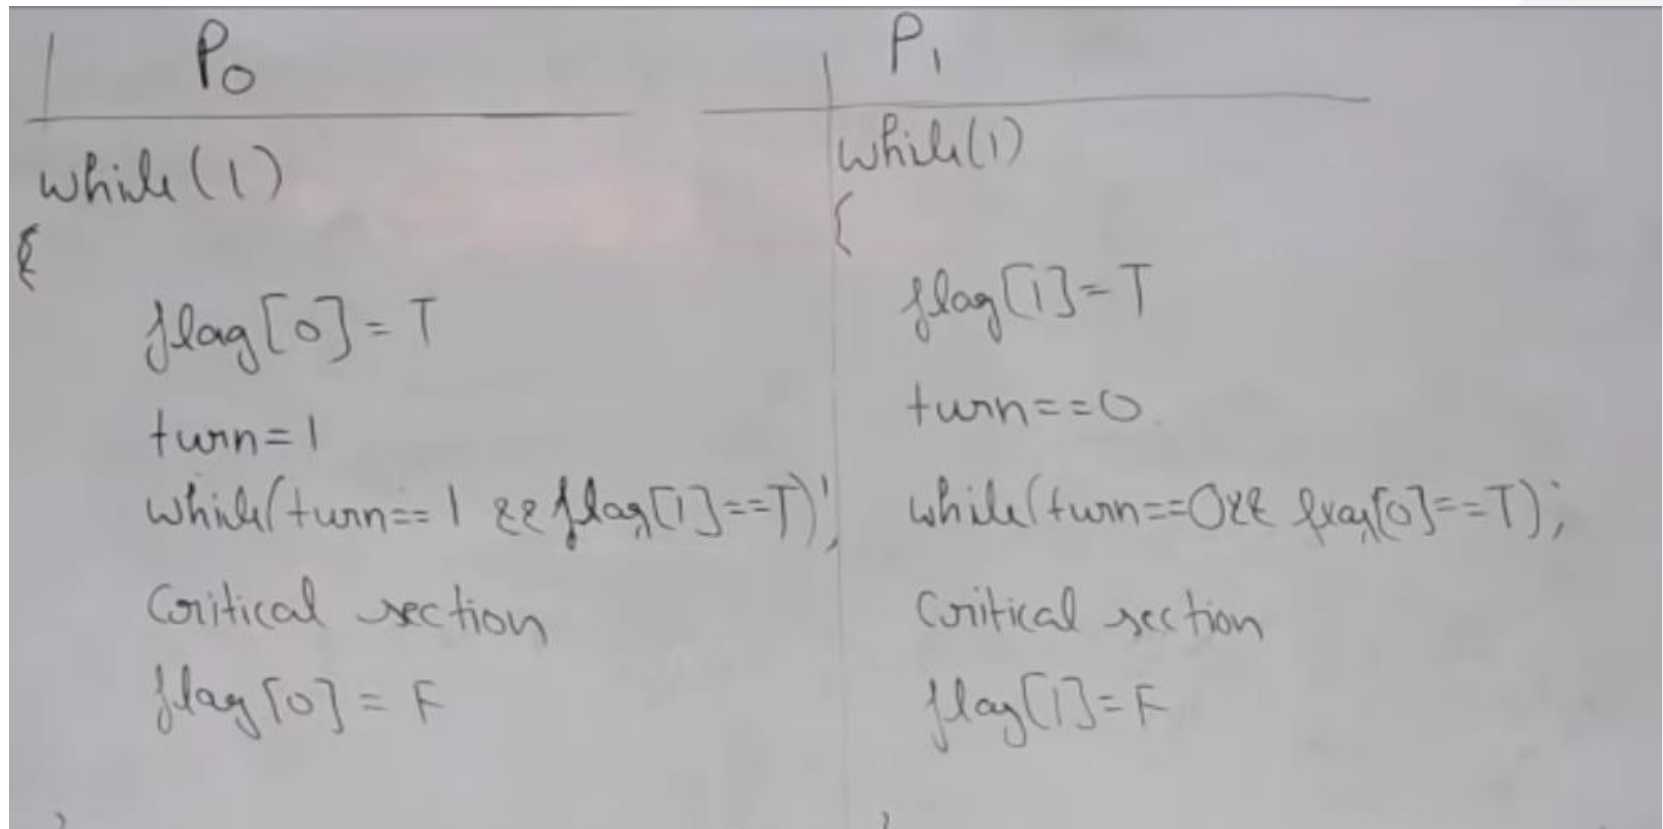 P0
while(1)
{
flag[0]=T
turn=1
while(turn==1 && flag[1]==T);
Critical section
flag[0]=F
}
P1
while(1)
{
flag[1]=T
turn==0
while(turn==0&& flag[0]==T);
Critical section
flag[1]=F
}